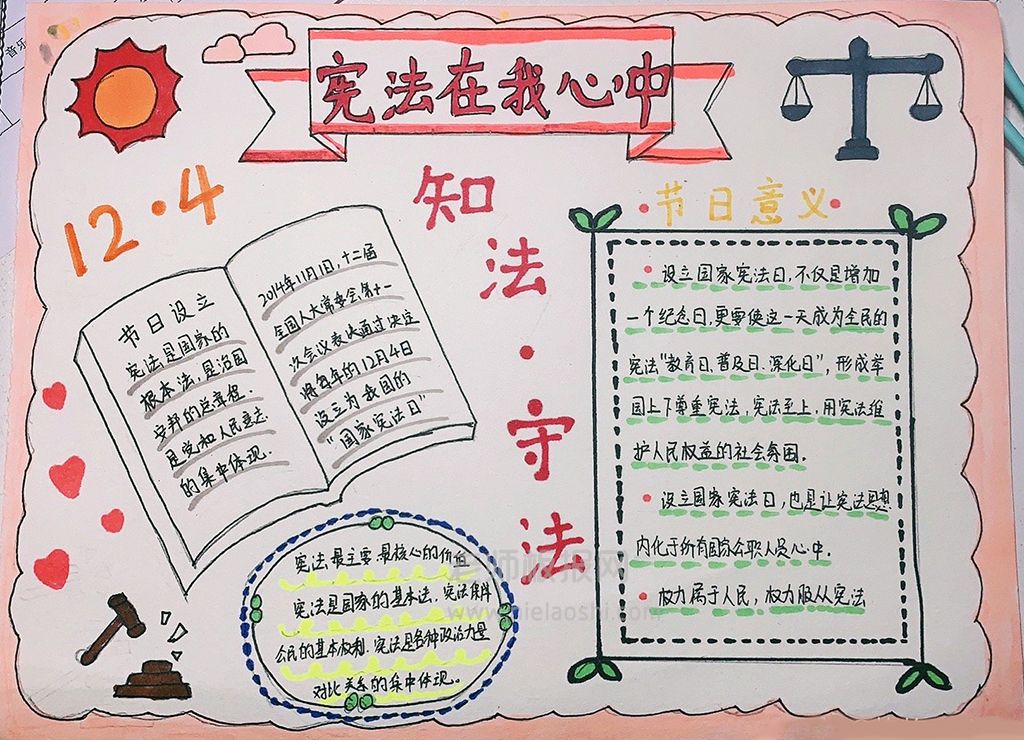 宪法在我心中
12·4
知法·守法
节日设立
宪法是国家的
根本法,是治国
安邦的总章程.
是党和人民意志
的集中体现.
2014年11月1日,十二届
全国人大常委会第十一
次会议表决通过决定
将每年的12月4日
设立为我国的
"国家宪法日"
·节日意义·
·设立国家宪法日,不仅是增加
一个纪念日,更要使这一天成为全民的
宪法"教育日、普及日、深化日",形成举
国上下尊重宪法,宪法至上,用宪法维
护人民权益的社会氛围.
·设立国家宪法日,也是让宪法思想
内化于所有国家公职人员心中.
·权力属于人民,权力服从宪法
宪法最主要、最核心的价
宪法是国家的基本法,宪法保障
公民的基本权利.宪法是各种政治力量
对比关系的集中体现。
老师板报网
音乐